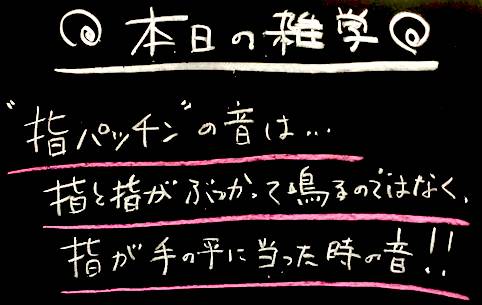 本日の雑学
“指パッチン”の音は…
指と指がぶつかって鳴るのではなく、
指が手の平に当った時の音!!